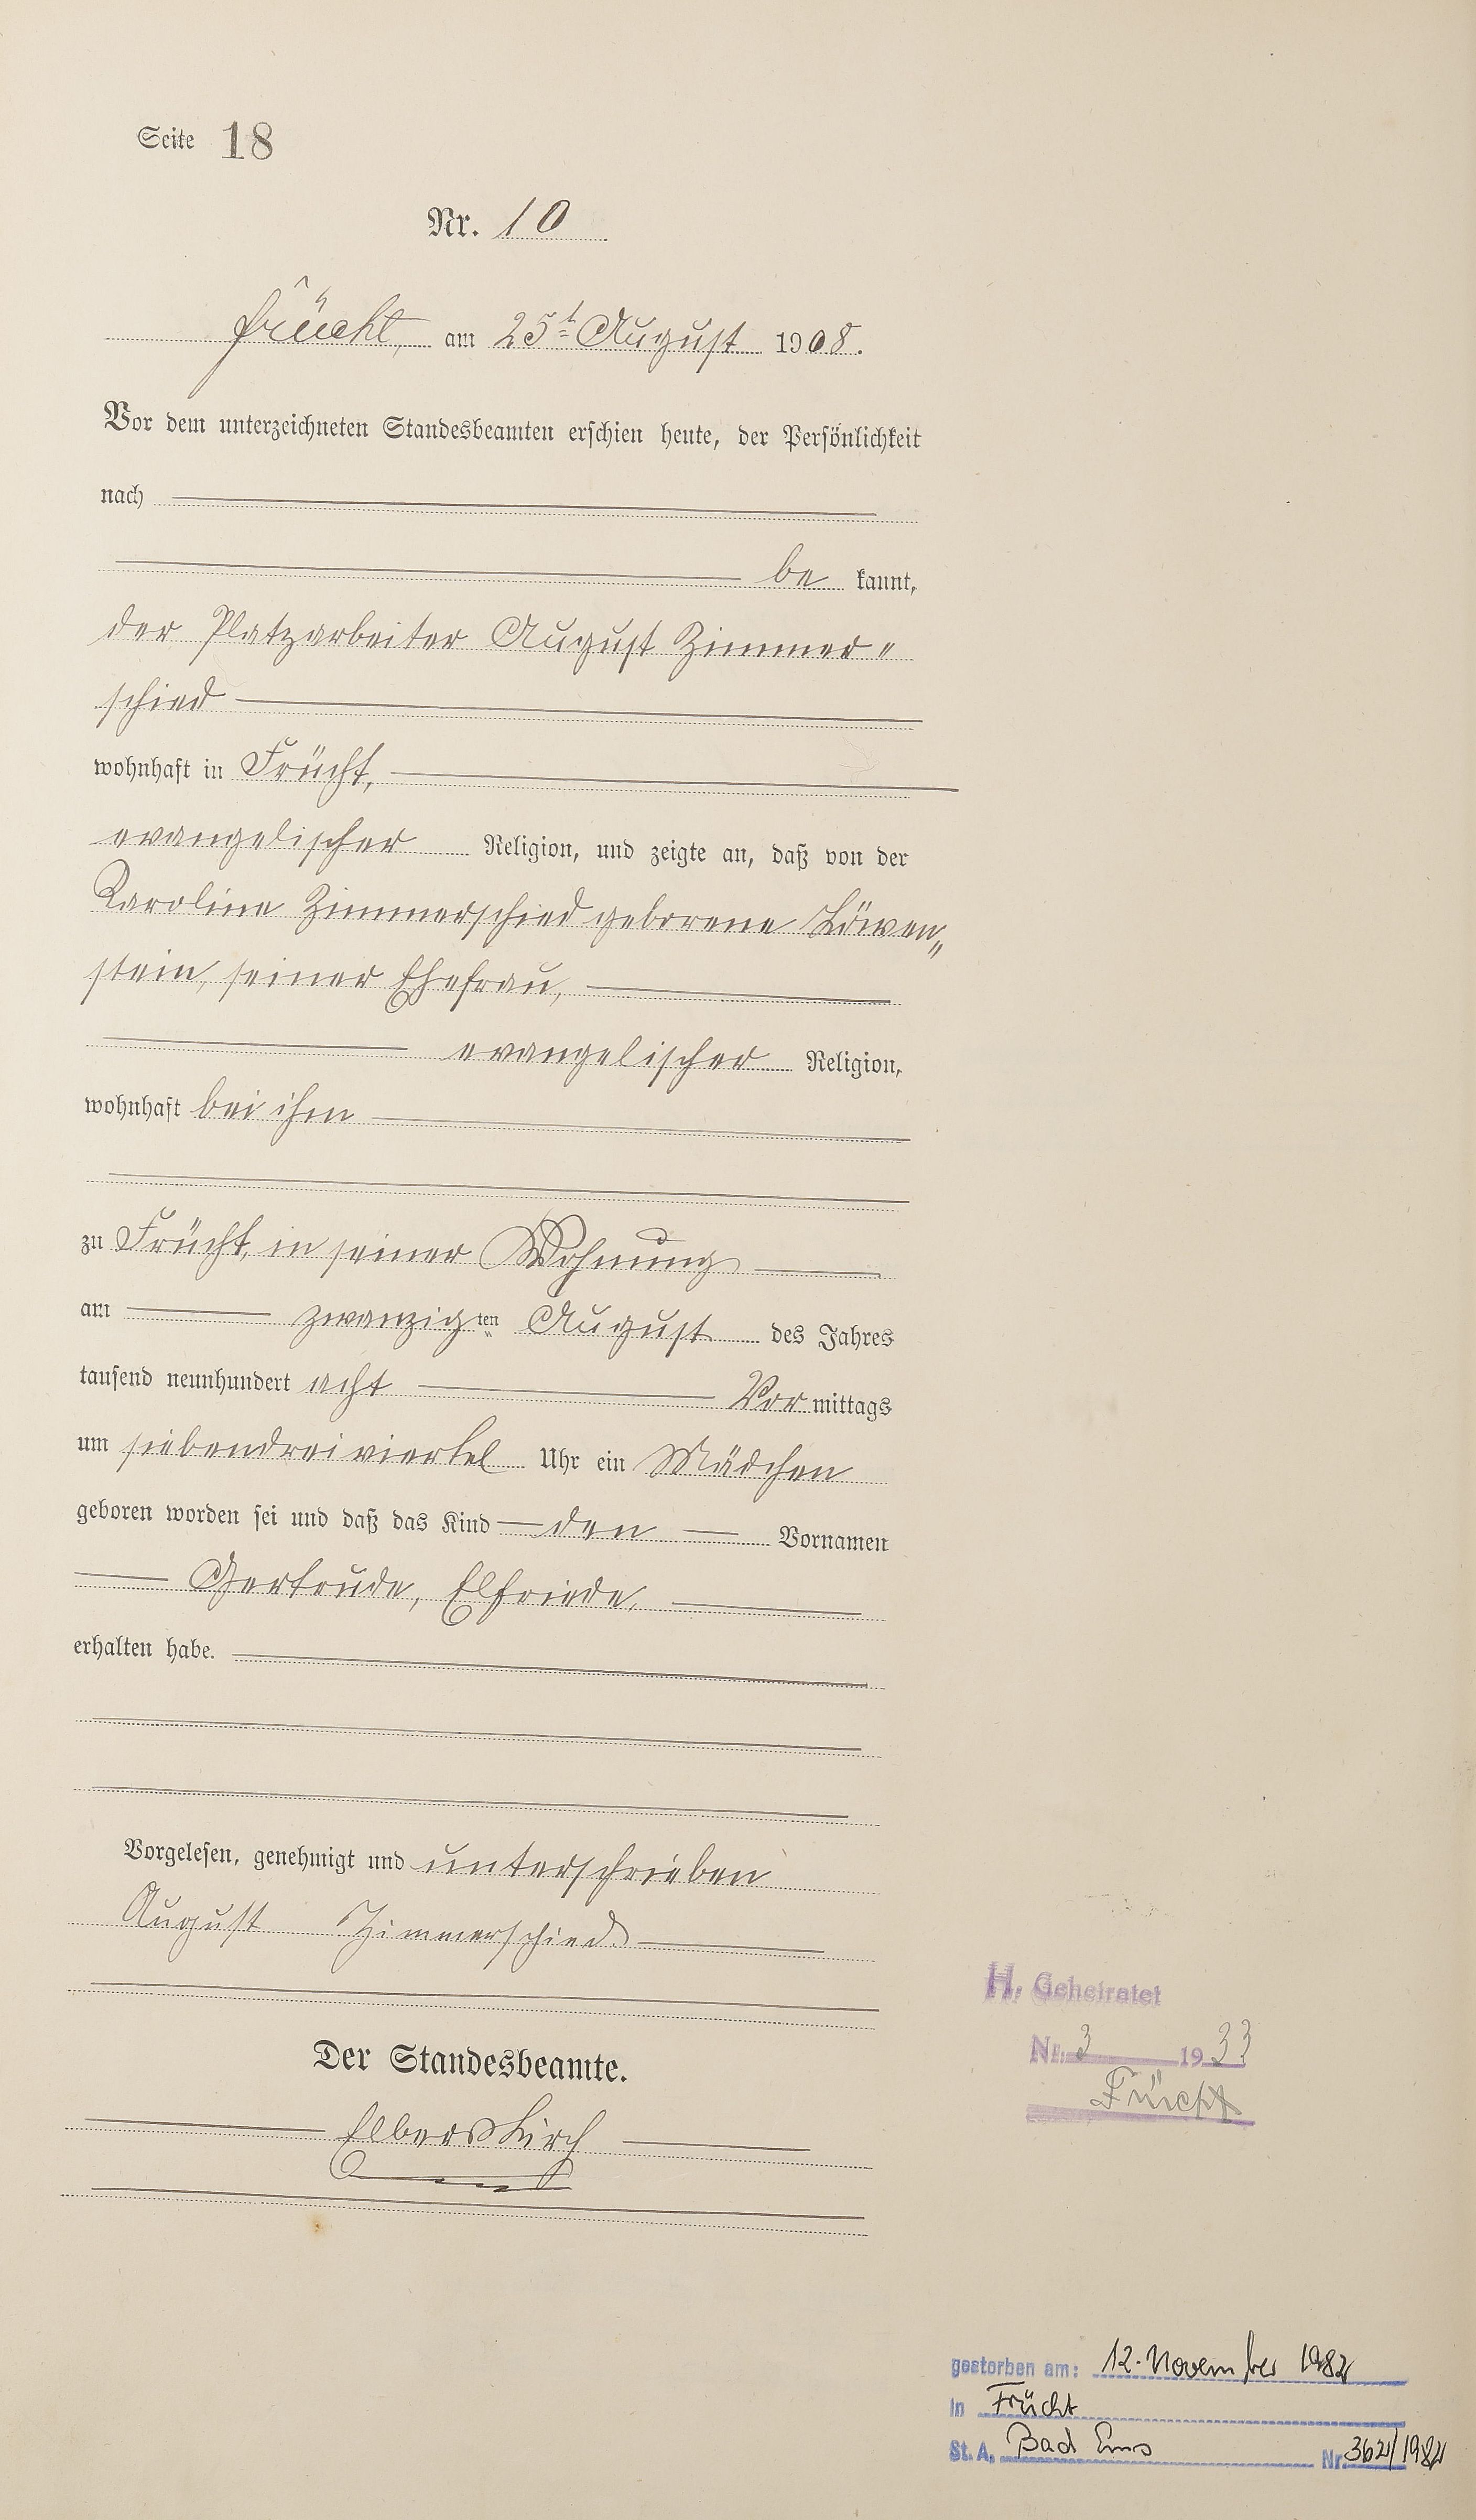 Seite 18
Nr. 10
Frücht, am 25t August 1908.
Vor dem unterzeichneten Standesbeamten erschien heute, der Persönlichkeit
nach
be kannt,
der Platzarbeiter August Zimmer„
schied
wohnhaft in Frücht,
evangelischer Religion, und zeigte an, daß von der
Karoline Zimmerschied geborene Löwen„
stein, seiner Ehefrau,
evangelischer Religion,
wohnhaft bei ihm
zu Frücht, in seiner Wohnung
am zwanzigten August des Jahres
tausend neunhundert acht Vor mittags
um siebendreiviertel Uhr ein Mädchen
geboren worden sei und daß das Kind den Vornamen
Gertrude, Elfriede,
erhalten habe.
Vorgelesen, genehmigt und unterschrieben
August Zimmerschied.
Der Standesbeamte.
Elberskirch
H. Geheiratet
Nr. 3 1933
Frücht
gestorben am: 12. November 1982
in Frücht
St. A. Bad Ems Nr. 362/1982